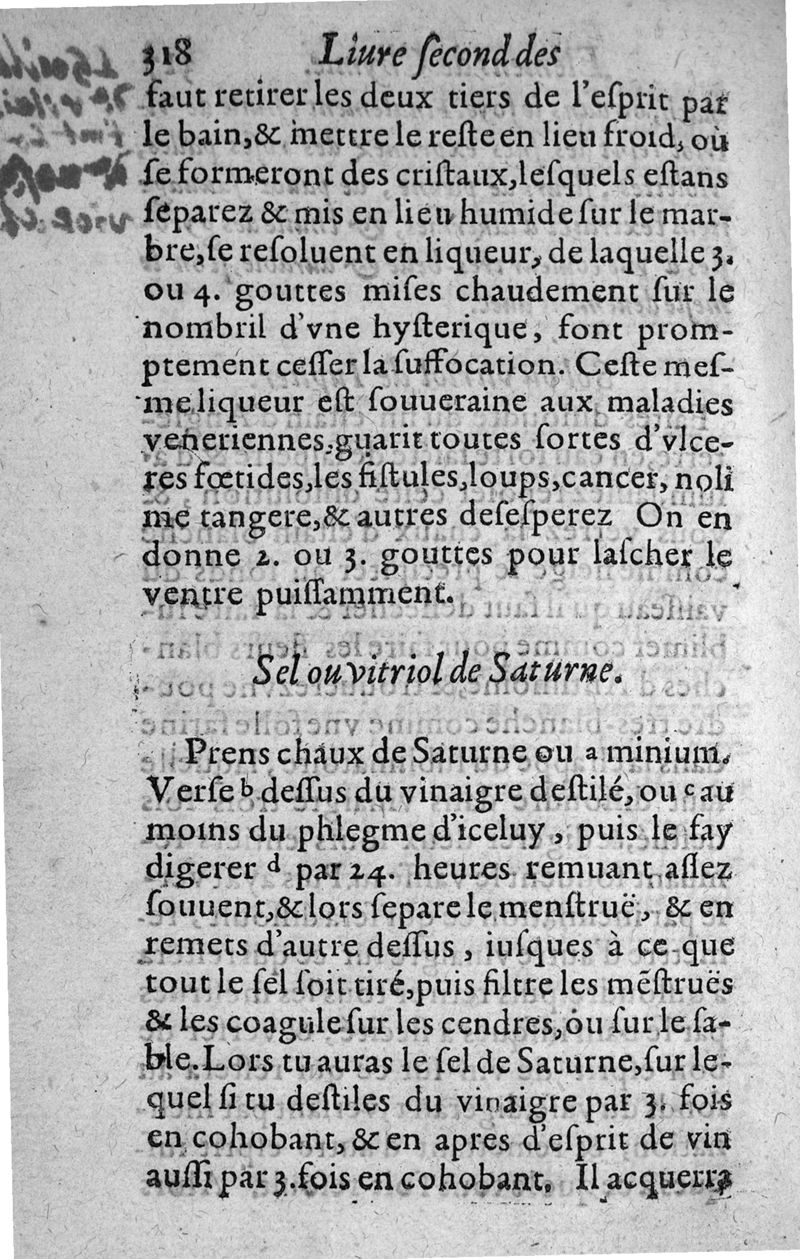 318 Liure ſecond des
faut retirer les deux tiers de l'eſprit par
le bain,& mettre le reſte en lieu froid, où
ſe formeront des criſtaux,leſquels eſtans
ſeparez & mis en lieu humide ſur le mar-
bre,ſe reſoluent en liqueur, de laquelle 3.
ou 4. gouttes miſes chaudement ſur le
nombril d'vne hyſterique, font prom-
ptement ceſſer la ſuffocation. Ceſte meſ-
me liqueur eſt ſouueraine aux maladies
veneriennes,guarit toutes ſortes d'vlce-
res fœtides,les fiſtules,loups,cancer, noli
me tangere,& autres deſeſperez On en
donne 2. ou 3. gouttes pour laſcher le
ventre puiſſamment.
Sel ou vitriol de Saturne.
Prens chaux de Saturne ou a minium.
Verſe b deſſus du vinaigre deſtilé, ou c au
moins du phlegme d'iceluy, puis le fay
digerer d par 24. heures remuant aſſez
ſouuent,& lors ſepare le menſtruë, & en
remets d'autre deſſus, iuſques à ce que
tout le ſel ſoit tiré,puis filtre les mẽſtruës
& les coagule ſur les cendres,ou ſur le ſa-
ble. Lors tu auras le ſel de Saturne,ſur le-
quel ſi tu deſtiles du vinaigre par 3. fois
en cohobant, & en apres d'eſprit de vin
auſſi par 3. fois en cohobant. Il acquerra